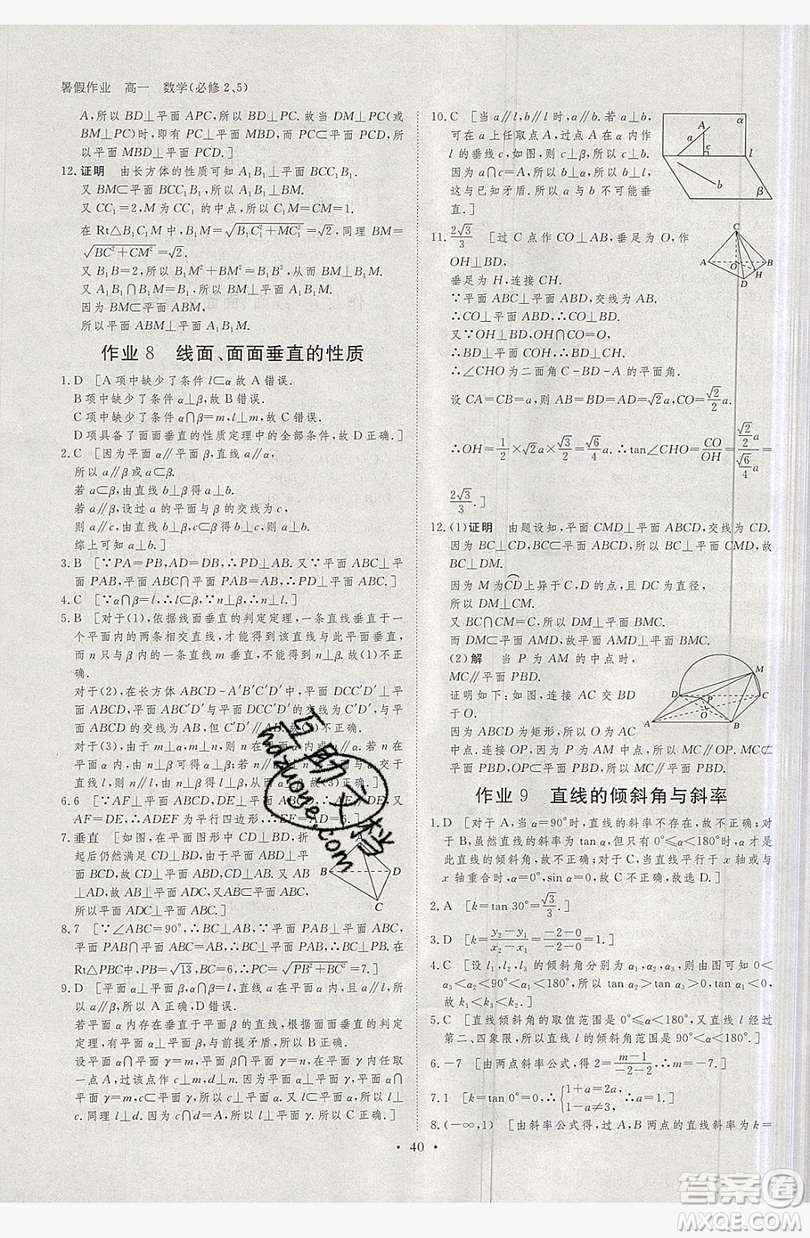 暑假作业　高一　数学(必修2、5)
A,所以 BD⊥平面 APC,所以 BD⊥PC.所以当 DM⊥PC(或
BM⊥PC)时,即有 PC⊥平面 MBD,而 PC⊂平面 PCD,所以
平面 MBD⊥平面 PCD.]
12.证明　由长方体的性质可知 A₁B₁⊥平面 BCC₁B₁.
又 BM⊂平面 BCC₁B₁,所以 A₁B₁⊥BM.
又 CC₁=2,M 为 CC₁ 的中点,所以 C₁M=CM=1.
在 Rt△B₁C₁M 中,B₁M=√(B₁C₁²+MC₁²)=√2,同理 BM=
√(BC²+CM²)=√2,又 B₁B=2,所以 B₁M²+BM²=B₁B²,从而
BM⊥B₁M.又 A₁B₁∩B₁M=B₁,所以 BM⊥平面 A₁B₁M.
因为 BM⊂平面 ABM,
所以平面 ABM⊥平面 A₁B₁M.
作业 8　线面、面面垂直的性质
1.D　[A 项中缺少了条件 l⊂α,故 A 错误.
B 项中缺少了条件 α⊥β,故 B 错误.
C 项中缺少了条件 α∩β=m,l⊥m,故 C 错误.
D 项具备了面面垂直的性质定理中的全部条件,故 D 正确.]
2.C　[因为平面 α∥平面 β,直线 a∥α,
所以 a∥β 或 a⊂β.
若 a⊂β,则由直线 b⊥β,得 b⊥a;
若 a∥β,设过 a 的平面与 β 的交线为 c,
则 a∥c,由直线 b⊥β,c⊂β,得 b⊥c,所以 a⊥b.
综上可知 a⊥b.]
3.B　[∵PA=PB,AD=DB,∴PD⊥AB.又∵平面 ABC⊥平
面 PAB,平面 ABC∩平面 PAB=AB,∴PD⊥平面 ABC.]
4.C　[∵α∩β=l,∴l⊂β,∵n⊥β,∴n⊥l.]
5.B　[对于(1),根据线面垂直的判定定理,一条直线垂直于一
个平面内的两条相交直线,才能得到该直线与此平面垂直,
由 n 只与平面 α 内的一条直线 m 垂直,不能得到 n⊥α,不正
确.
对于(2),在长方体 ABCD-A′B′C′D′中,平面 DCC′D′⊥平
面 ABCD,平面 DCC′D′与平面 ABCD 的交线为 DC,C′D′⊥
B′C′,但 B′C′与平面 ABCD 不垂直,不正确.
对于(3),由于 m⊥α,m⊥n,则 n 在平面 α 内或 n∥α,若 n 在
平面 α 内,由 n⊥β 得 α⊥β,若 n∥α,则 α⊥β,正确.]
6.6　[∵AF⊥平面 ABCD,DE⊥平面 ABCD,∴AF∥DE,又
AF=DE,∴ADEF 为平行四边形,∴EF=AD=6.]
7.垂直　[如图,在平面图形中 CD⊥BD,折
起后仍然满足 CD⊥BD.由于平面 ABD⊥
平面 BCD,故 CD⊥平面 ABD,CD⊂平面
ADC.
所以平面 ADC⊥平面 ABD.]
8.7　[∵∠ABC=90°,∴BC⊥AB.又∵平面 PAB⊥平面 ABC,
平面 PAB∩平面 ABC=AB,∴BC⊥平面 PAB,∴BC⊥PB.在
Rt△PBC 中,PB=√13,BC=6,∴PC=√(PB²+BC²)=7.]
9.D　[因为平面 α⊥平面 β,α∩β=l,若 l⊥γ,则 D 错误.
若平面 α 内存在直线垂直于平面 β,根据面面垂直的判定,则
有平面 α⊥平面 β,与前提矛盾,所以 B 正确.
设平面 α 内任一点为 A,作 AB⊥c,垂足为 B,则 AB⊥γ,所以 AB⊥l,
同理,作直线 d⊥l,又 c∩d=A,所以 l⊥γ,故 C 正确.]
10.C　[因为 a∥α,a∥l,所以 a∥β.若 a⊥b,
则可在 a 上任取点 A,过点 A 在 α 内作
l 的垂线 c(如图),则 c⊥β,所以 c⊥b.
因为 a∩c=A,所以 b⊥α,所以 b⊥l,
这与已知矛盾,所以 a 与 b 不可能
垂直.]
11.2√3/3　[过 C 点作 CO⊥AB,垂足为 O,作
OH⊥BD,
垂足为 H,连接 CH.
∵平面 ABC⊥平面 ABD,交线为 AB,
∴CO⊥平面 ABD,∴CO⊥BD.
又∵OH⊥BD,CO∩OH=O,∴BD⊥平面 COH,∴BD⊥CH.
∴∠CHO 为二面角 C-BD-A 的平面角.
设 CA=CB=a,则 AB=BD=AD=√2a,CO=√2/2 a,
∴OH=1/2×√3/2×√2a=√6/4 a.∴tan∠CHO=CO/OH=(√2/2 a)/(√6/4 a)=
2√3/3.]
12.(1)证明　由题设知,平面 CMD⊥平面 ABCD,交线为 CD.
因为 BC⊥CD,BC⊂平面 ABCD,所以 BC⊥平面 CMD,故
BC⊥DM.
因为 M 为CD上异于 C,D 的点,且 DC 为直径,
所以 DM⊥CM.
又 BC∩CM=C,所以 DM⊥平面 BMC.
而 DM⊂平面 AMD,故平面 AMD⊥平面 BMC.
(2)解　当 P 为 AM 的中点时,
MC∥平面 PBD.
证明如下:如图,连接 AC 交 BD
于 O.
因为 ABCD 为矩形,所以 O 为 AC 中
点.连接 OP,因为 P 为 AM 中点,所以 MC∥OP.MC⊄
平面 PBD,OP⊂平面 PBD,所以 MC∥平面 PBD.
作业 9　直线的倾斜角与斜率
1.D　[对于 A,当 α=90°时,直线的斜率不存在,故不正确;对
于 B,虽然直线的斜率为 tan α,但只有 0°≤α<180°时,α 才是
此直线的倾斜角,故不正确;对于 C,当直线平行于 x 轴或与
x 轴重合时,α=0°,sin α=0,故 C 不正确,故选 D.]
2.A　[k=tan 30°=√3/3.]
3.D　[k=(y₂-y₁)/(x₂-x₁)=(-2-0)/(-1-0)=2.]
4.C　[设 l₁,l₂,l₃ 的倾斜角分别为 α₁,α₂,α₃,则由图可知 0<
α₃<α₂<90°<α₁<180°,所以 tan α₂>tan α₃>0,tan α₁<0,
故 k₁<k₃<k₂.]
5.C　[直线倾斜角的取值范围是 0°≤α<180°,又直线 l 经过
第二、四象限,所以直线 l 的倾斜角的范围是 90°<α<180°.]
6.-7　[由两点斜率公式,得 2=(m-1)/(-2-2),∴m=-7.]
7.1　[k=(2+1)/(1+a)=tan 60°=√3,∴{1+a=2, 1+a≠0,∴a=1.]
8.(-∞,1)　[由斜率公式,得经过两点的直线方程为 k=
40
互助文档
hdzuoye.com
答案圈
MXQE.COM